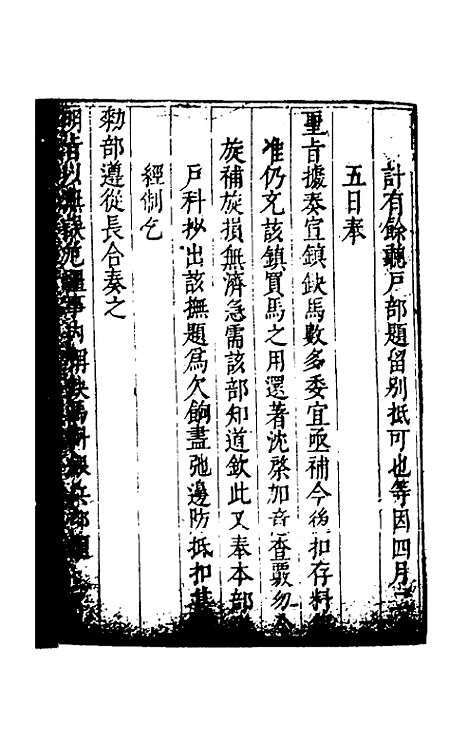 計有餘聽戶部題留別抵可也等因四月二
五日奉
聖旨據奏宣鎮缺馬數多委宜亟補今後扣存料
准仍充該鎮買馬之用還著沈棨加意查覈勿
旋補旋損無濟急需該部知道欽此又奉本部
戶科抄出該撫題為欠餉盡弛邊防抵扣甚
經制乞
勑部遵從長合奏之
明旨以無缺